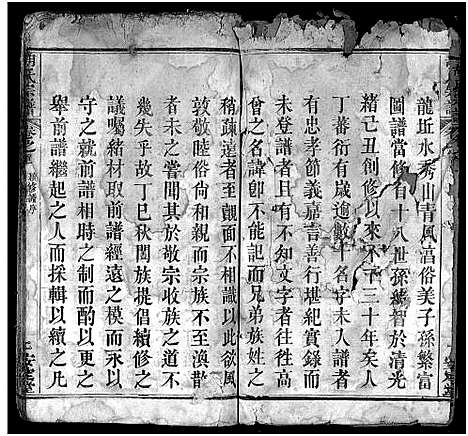 龍坵水秀山青風富俗美子孫繁富
圖譜當修有十八世孫 智於清光
緒己丑創修以來不下三十年矣人
丁蕃衍有歲逾數十名字未入譜者
有忠孝節義嘉言善行堪紀實錄而
未登譜者且有不知文字者往徃高
曾之名諱卽不能記而兄弟族姓之
稍疎遠者至覿面不相識以此欲風
敦敬睦俗尚和親而宗族不至渙散
者未之嘗聞其於敬宗收族之道不
幾失乎故丁巳秋闔族提倡續修之
議囑緒材取前譜經遠之模而永以
守之就前譜相時之制而酌以更之
舉前譜繼起之人而採輯以續之凡
胡氏宗譜
卷之首
續修譜序
安定堂